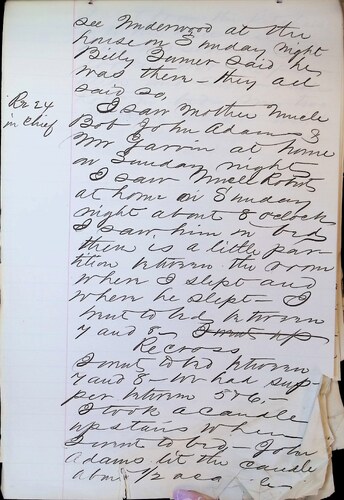 see Underwood at the
house on Sunday night
Billy Turner said he
was there - they all
said so,
Re 24
in Chief
I saw Mother Uncle
Bob John Adams &
Mr Garvin at home
on Sunday night
I saw Uncle Robt
at home on Sunday
night about 8 oclock
I saw him in bed
there is a little par-
tition between the room
where I slept and
where he slept - I
went to bed between
7 and 8 - I went up
Recross
I went to bed between
7 and 8 - we had sup-
per between 5 & 6 -
I took a candle
upstairs when
I went to bed - John
Adams lit the candle
about 1/2 a ca